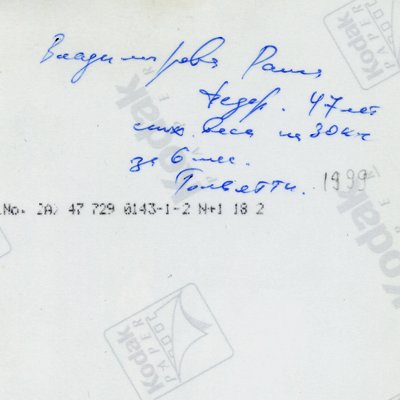 Владимирова Раиса
Федор. 47 лет
сниж. веса на 30 кг
за 6 мес.
Тольятти. 1999
No. 2A) 47 729 0143-1-2 N+1 18 2
Kodak
PAPER
Kodak
Kodak
Kodak
PAPER